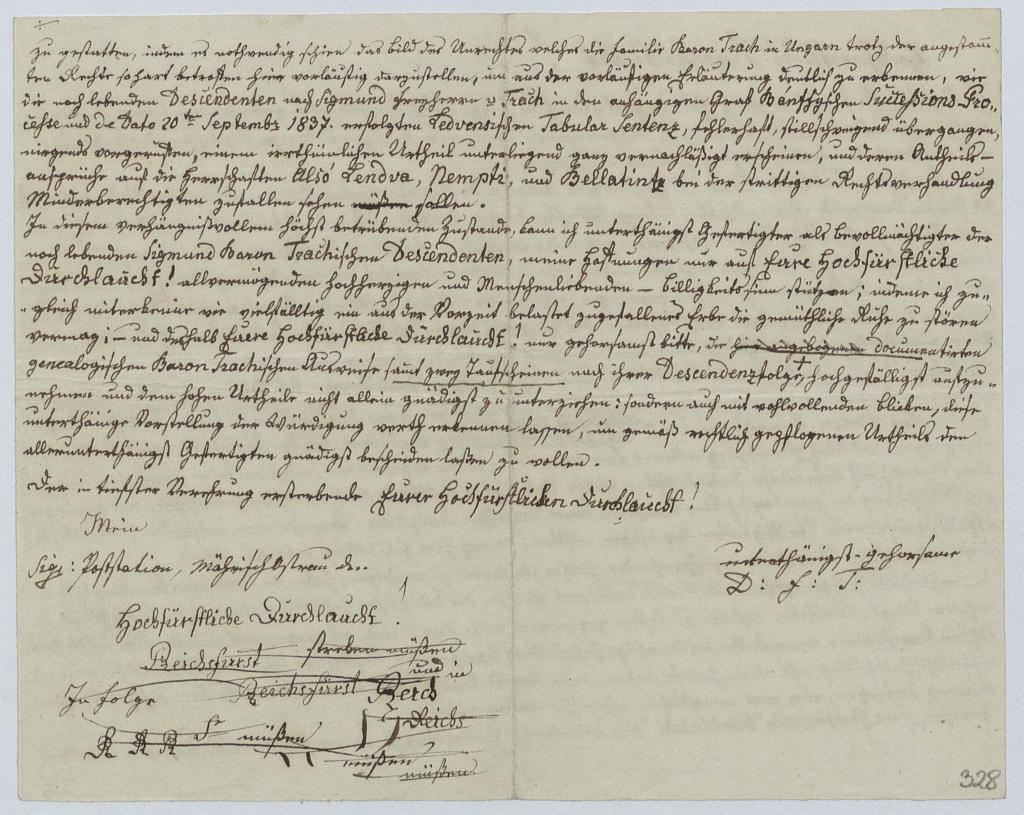 zu gestatten, indem es nothwendig schien das Bild des Unrechtes welches die Familie Baron Trach in Ungarn trotz der angestamm-
ten Rechte so hart betroffen hier vorläufig darzustellen, um aus der vorläufigen Erläuterung deutlich zu erkennen, wie
die noch lebenden Descendenten nach Sigmund Freyherrn v Trach in den anhängigen Graf Bánffyschen Successions-Pro„
cesse und de Dato 20ten Septembr 1837. erfolgten Tabular Sentenz, fehlerhaft, stillschweigend übergangen,
nirgends vorgerufen, einem irrthümlichen Urtheil unterliegend ganz vernachläßigt erscheinen, und deren Antheils-
ansprüche auf die Herrschaften Also Lendva, Nempti, und Bellatintz bei der strittigen Rechtsverhandlung
Minderberechtigten zufallen sehen müßen sollen.
In diesem verhängnißvollem höchst betrübenden Zustande, kann ich unterthänigst Gefertigter als Bevollmächtigter der
noch lebenden Sigmund Baron Trachischen Descendenten, meine Hoffnungen nur auf Eure Hochfürstliche
Durchlaucht! allvermögenden hochherzigen und Menschenliebenden – billigkeitssinn stützen; indeme ich zu„
„gleich miterkenne wie vielfälltig ein aus der Vorzeit belastet zugefallenes Erbe die gemüthliche Ruhe zu stören
vermag; – und deshalb Eurere Hochfürstliche Durchlaucht! nur gehorsamst bitte, die hier angebogenen documentirten
genealogischen Baron Trachischen Ausweise samt zwey Taufscheinen nach ihrer Descendenzfolge, hochgefälligst aufzu„
nehmen und dem hohen Urtheile nicht allein gnädigst zu unterziehen: sondern auch mit wohlwollenden blicken, diese
unterthänige Vorstellung der Würdigung werth erkennen lassen, um gemäß rechtlich gepflogenen Urtheils den
allerunterthänigst Gefertigten gnädigst bescheiden laßen zu wollen.
Der in tiefster Verehrung ersterbende Eurer Hochfürstlichen Durchlaucht!
Mein
Sig: Poststation, MährischOstrau den..
unterthänigst-gehorsame
D: F: T:
Hochfürstliche Durchlaucht!
Reichsfürst streben müßen
und in
In folge Reichsfürst Reich
Reichs
R R R müßen
müßen
müßen
328